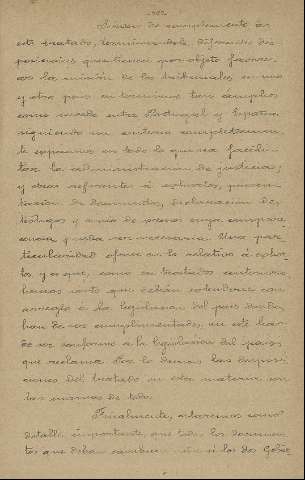 Sirven de complemento en
este tratado, terminándole, diferentes dis
posiciones que tienen por objeto favore
cer la misión de los tribunales en uno
y otro país en términos tan amplios
como cuando entre Portugal y España
siguiendo un criterio completamen
te expansivo en todo lo que sea facili
tar la administración de justicia;
y otras referentes á exhortos, presen
tación de documentos, declaración de
testigos y envio de presos cuya compare
cencia pueda ser necesaria. Una par
ticularidad ofrece en lo relativo á exhor
tos, y es que, como en tratados anteriores
hemos visto que debían extenderse con
arreglo á la legislación del país donde
han de ser cumplimentados, en éste han
de ser conforme á la legislación del país
que reclama. Por lo demás las disposi
ciones del tratado en esta materia son
las mismas de todos.
Finalmente, citaremos como
detalle importante que todos los documen
tos que deban cambiarse los dos Gobier